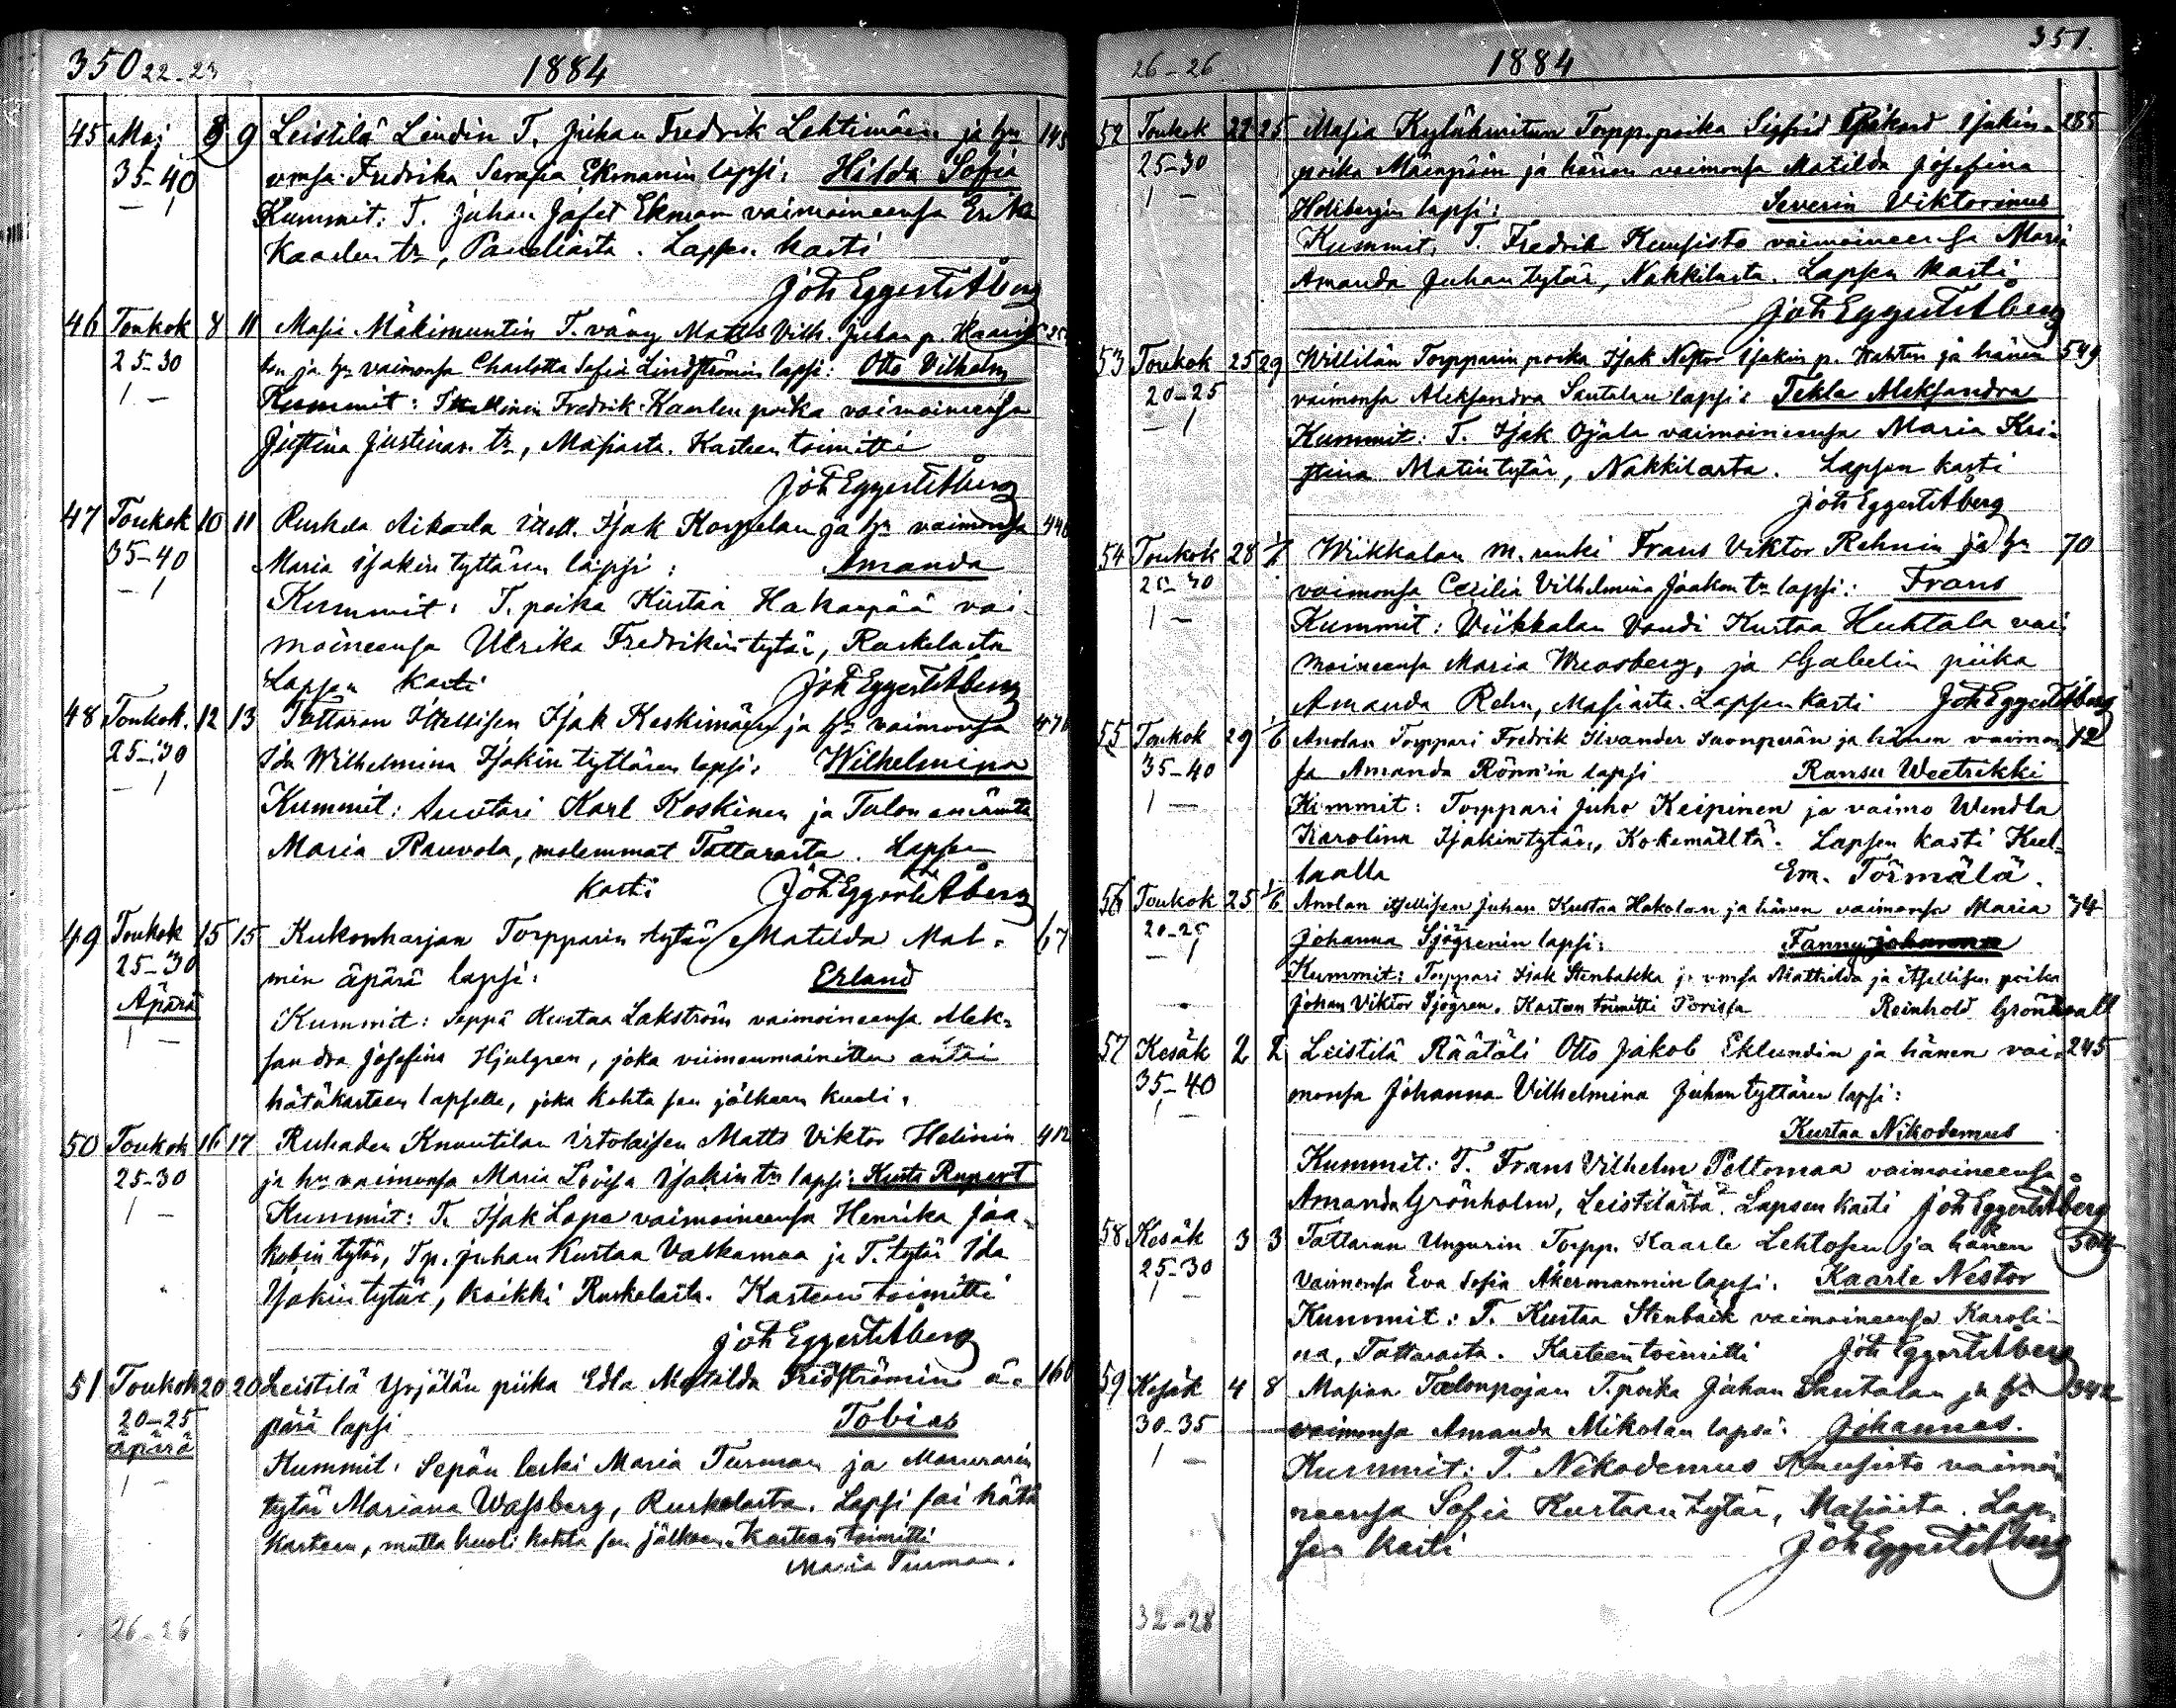 350 22-23 1884
45 Maj 8 9 Leistilä Lindin T. Juhan Fredrik Lehtimäen ja hn 145
35-40 vmsa Fredrika Serafia Ekmanin lapsi: Hilda Sofia
– 1 Kummit: T. Juhan Jafet Ekman vaimoineensa Erika
Kaarlen tr, Paneliasta. Lapsen kasti
Joh Eggert Åberg
46 Toukok 8 11 Masia Mäkimuntin T. vävy Matts Vilh. Juhan p.
25-30 ja hn vaimonsa Charlotta Sofia Lindströmin lapsi: Otto Vilhelm
1 – Kummit: Itsellinen Fredrik Kaarlen poika vaimoineensa
Justina Justinan tr, Masiasta. Kasteen toimitti
Joh Eggert Åberg
47 Toukok 10 11 Ruskela Aikaela Itsell. Isak Korpelan ja hn vaimonsa 446
35-40 Maria Isakin tyttären lapsi: Amanda
– 1 Kummit: T. poika Kustaa Hakapää vai-
moineensa Ulrika Fredrikin tytär, Ruskelasta
Lapsen kasti Joh Eggert Åberg
48 Toukok. 12 13 Tattaran Itsellisen Isak Keskimäen ja hn vaimonsa 476
25-30 Ida Wilhelmina Isakin tyttären lapsi: Wilhelmina
– 1 Kummit: Suutari Karl Koskinen ja Talon emäntä
Maria Rauvola, molemmat Tattarasta. Lapsen
kasti Joh Eggert Åberg
49 Toukok 15 15 Kukonharjan Torpparin tytär Matilda Mal- 67
25-30 min äpärä lapsi: Erland
Äpärä Kummit: Seppä Kustaa Lakström vaimoineensa Alek-
1 – sandra Josefina Hjulgren, joka viimeinmainittu antoi
hätäkasteen lapselle, joka kohta sen jälkeen kuoli.
50 Toukok 16 17 Ruhaden Knuutilan irtolaisen Matts Viktor Helinin 412
25-30 ja hn vaimonsa Maria Lovisa Isakin tr lapsi: Kusta Rupert
1 – Kummit: T. Isak Lope vaimoineensa Henrika Jaa-
kobin tytär, Tp. Juhan Kustaa Valkamaa ja T. tytär Ida
Isakin tytär, kaikki Ruskelasta. Kasteen toimitti
Joh Eggert Åberg
51 Toukok 20 20 Leistilä Yrjälän piika Edla Matilda Fridströmin ä- 160
20-25 pärä lapsi Tobias
äpärä Kummit: Sepän leski Maria Turman ja Muurarin
1 – tytär Mariana Wassberg, Ruskelasta. Lapsi sai hätä
kasteen, mutta kuoli kohta sen jälkeen. Kasteen toimitti
Maria Turman.
26-26
26-26 1884 351.
52 Toukok 22 25 Masia Kylähuitun Torpp. poika Sigfrid Rikard Isakin- 285
25-30 poika Mäenpään ja hänen vaimonsa Matilda Josefina
1 – Holmbergin lapsi: Severin Viktorinus
Kummit: T. Fredrik Kuusisto vaimoineensa Maria
Amanda Juhan tytär, Nakkilasta. Lapsen kasti
Joh Eggert Åberg
53 Toukok 25 29 Willilän Torpparin poika Isak Nestor Isakin p. Kahten ja hänen 549
20-25 vaimonsa Aleksandra Santalan lapsi: Tekla Aleksandra
– 1 Kummit: T. Isak Ojala vaimoineensa Maria Kri-
stina Matin tytär, Nakkilasta. Lapsen kasti
Joh Eggert Åberg
54 Toukok 28 1/6 Wiikkalan m. renki Frans Viktor Rehnin ja hn 70
25-30 vaimonsa Cecilia Vilhelmina Jaakon tr lapsi: Frans
1 – Kummit: Viikkalan Voudi Kustaa Huhtala vai-
moineensa Maria Wreosberg, ja Gabelin piika
Amanda Rehn, Masiasta. Lapsen kasti Joh Eggert Åberg
55 Toukok 29 1/6 Anolan Torppari Fredrik Ilvander Suonperän ja hänen vaimon- 12
35-40 sa Amanda Rönn'in lapsi Ransu Weetrikki
1 – Kummit: Torppari Juho Keipinen ja vaimo Wendla
Karolina Isakintytär, Kokemäeltä. Lapsen kasti Kul-
laalla Em. Törmälä.
56 Toukok 25 1/6 Anolan itsellisen Juhan Kustaa Hakolan ja hänen vaimonsa Maria 74
20-25 Johanna Sjögrenin lapsi: Fanny Johanna
– 1 Kummit: Torppari Isak Stenbacka ja vmsa Mathilda ja itsellisen poika
Johan Viktor Sjögren. Kasteen toimitti Porissa Reinhold Grönvall
57 Kesäk 2 2 Leistilä Räätäli Otto Jakob Eklundin ja hänen vai- 245
35-40 monsa Johanna Vilhelmina Juhan tyttären lapsi:
1 – Kustaa Nikodemus
Kummit: T. Frans Vilhelm Peltomaa vaimoineensa
Amanda Grönholm, Leistilästä. Lapsen kasti Joh Eggert Åberg
58 Kesäk 3 3 Tattaran Ungurin Torpp. Kaarle Lehtosen ja hänen 504
25-30 vaimonsa Eva Sofia Åkermannin lapsi: Kaarle Nestor
1 – Kummit: T. Kustaa Stenback vaimoineensa Karoli-
na, Tattarasta. Kasteen toimitti Joh Eggert Åberg
59 Kesäk 4 8 Masian Talonpojan T. poika Juhan Santalan ja hn 342
30-35 vaimonsa Amanda Mikolan lapsi: Johannes.
1 – Kummit: T. Nikodemus Kuusisto vaimoi-
neensa Sofia Kustaan tytär, Masiasta. Lap-
sen kasti Joh Eggert Åberg
32-28